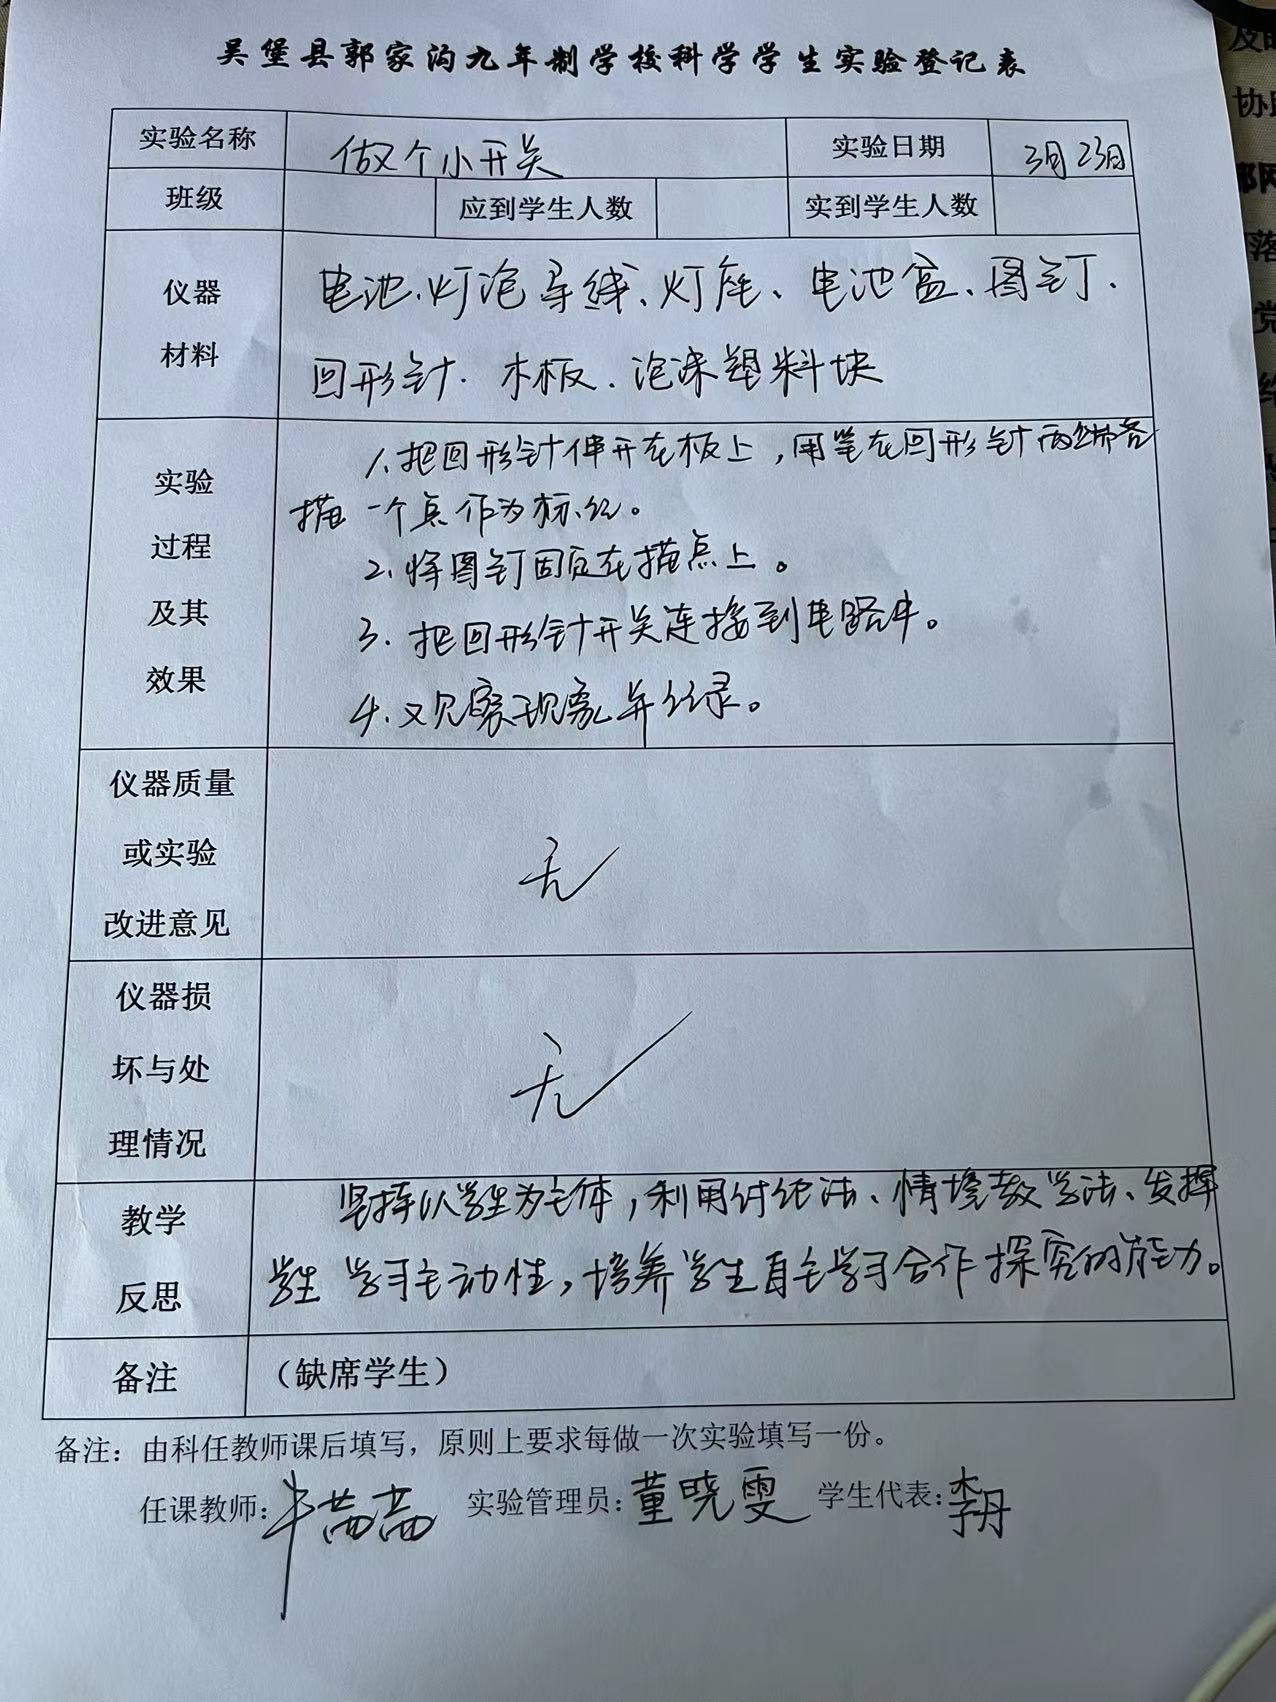 吴堡县郭家沟九年制学校科学学生实验登记表
实验名称 做个小开关 实验日期 3月23日
班级 应到学生人数 实到学生人数
仪器
材料
电池、灯泡、导线、灯座、电池盒、图钉、
回形针、木板、泡沫塑料块
实验
过程
及其
效果
1.把回形针伸开在板上，用笔在回形针两端各
描一个点作为标记。
2.将图钉固定在描点上。
3.把回形针开关连接到电路中。
4.观察现象并记录。
仪器质量
或实验
改进意见
无
仪器损
坏与处
理情况
无
教学
反思
坚持以学生为主体，利用讨论法、情境教学法、发挥
学生学习主动性，培养学生自主学习合作探究的能力。
备注 （缺席学生）
备注：由科任教师课后填写，原则上要求每做一次实验填写一份。
任课教师： 实验管理员：董晓雯 学生代表：李丹
及时
协助
落
党